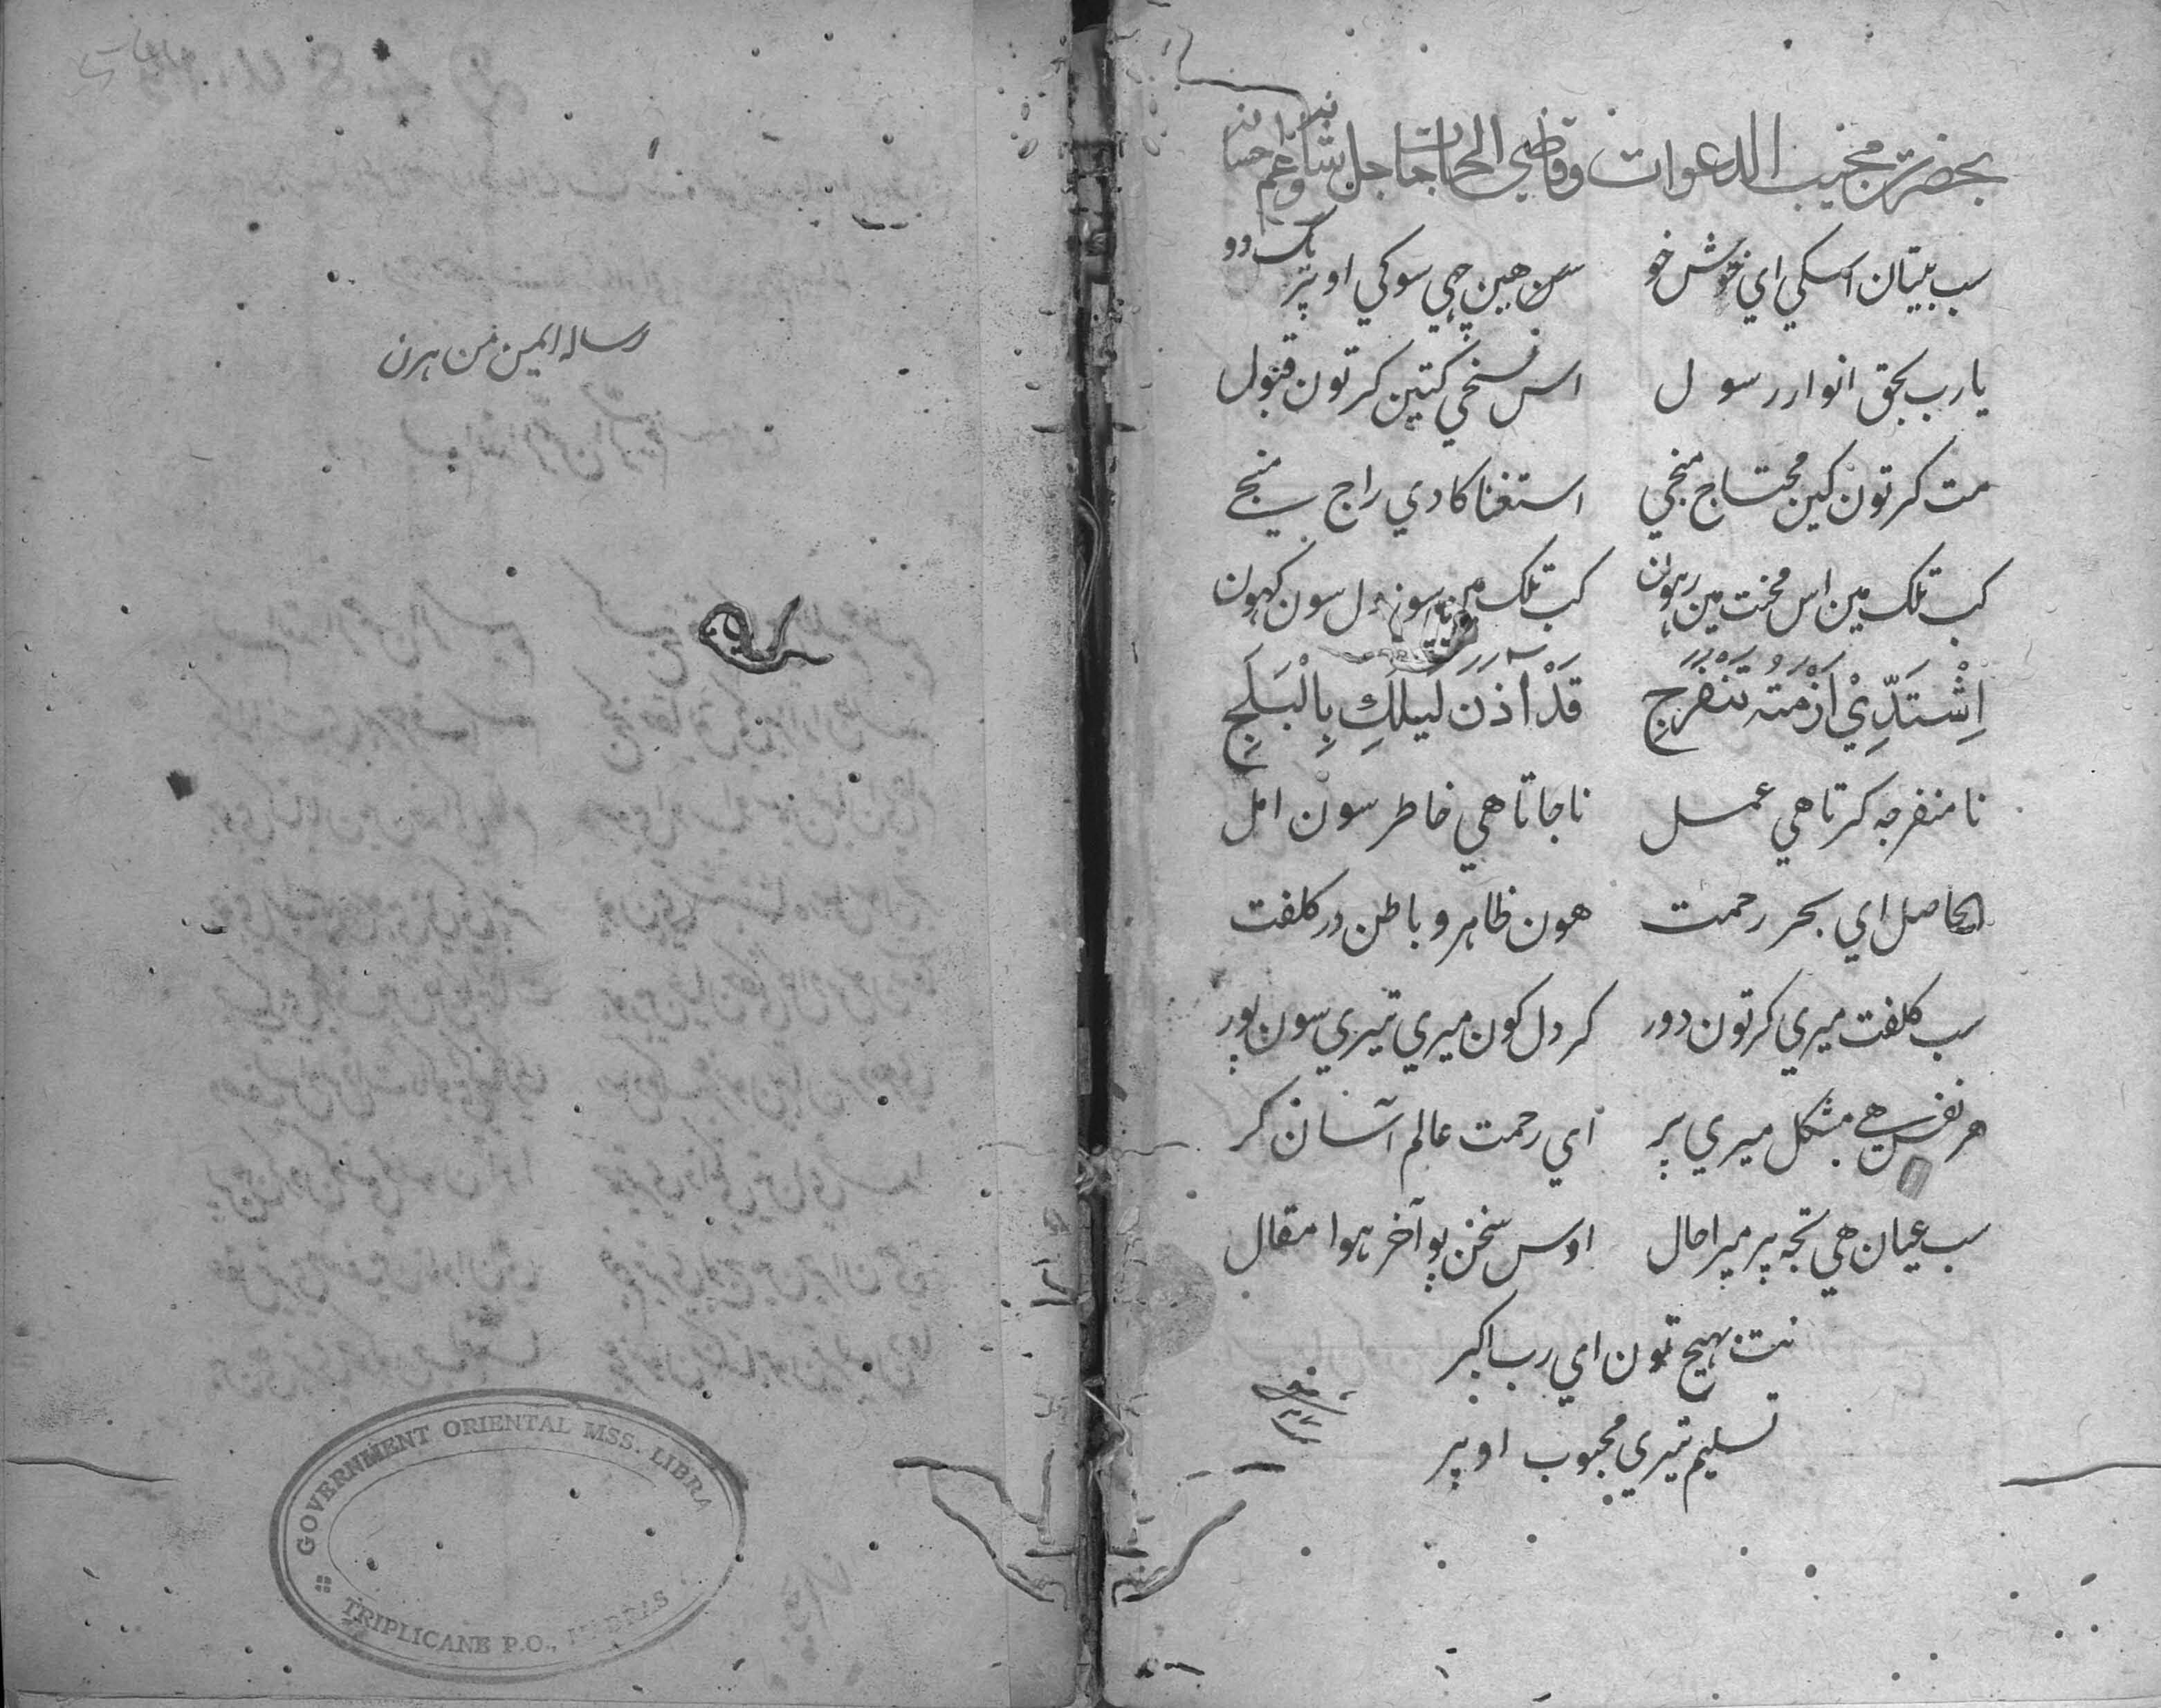 بحضرت مجیب الدعوات وقاضی الحاجات جل شانه وعم احسانه
سب بیتان اسکي اي خوش خو سن هین چهي سوکي اوپر یک دو
یارب بحق انوار رسول اس نسخي کتین کر تون قبول
مت کر تون کین محتاج منجي استغنا کا دي راج منجے
کب تلک مین اس محنت مین رہون کب تلک مین سوز دل سون کہون
اِشْتَدِّيْ اَزْمَتہ تَنْفَرِجِ قَدْ اٰذَنَ لَیلُكِ بِالْبَلَجِ
نا منفرجہ کرتا هي عمل نا جاتا هي خاطر سون امل
الحاصل اي بحر رحمت هون ظاهر و باطن در کلفت
سب کلفت میري کر تون دور کر دل کون میري تیري سون پور
هر نفس هے مشکل میري پر اي رحمت عالم آسان کر
سب عیان هي تجہ پر میرا حال اوس سخن پو آخر ہوا مقال
نت بہیج تون اي رب اکبر
تسلیم تیري محبوب اوپر
رسالہ ایمین من ہرن
GOVERNMENT ORIENTAL MSS. LIBRA
TRIPLICANE P.O., MADRAS